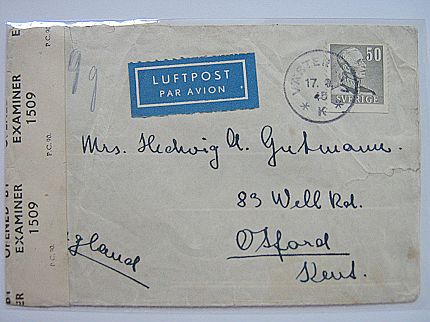 OPENED BY
EXAMINER
1509
P.C. 90.
OPENED BY
EXAMINER
1509
P.C. 90.
99
LUFTPOST
PAR AVION
17.
45
K
50
SVERIGE
Mrs. Hedwig A. Gutmann.
83 Well Rd.
Otford
Kent.
England